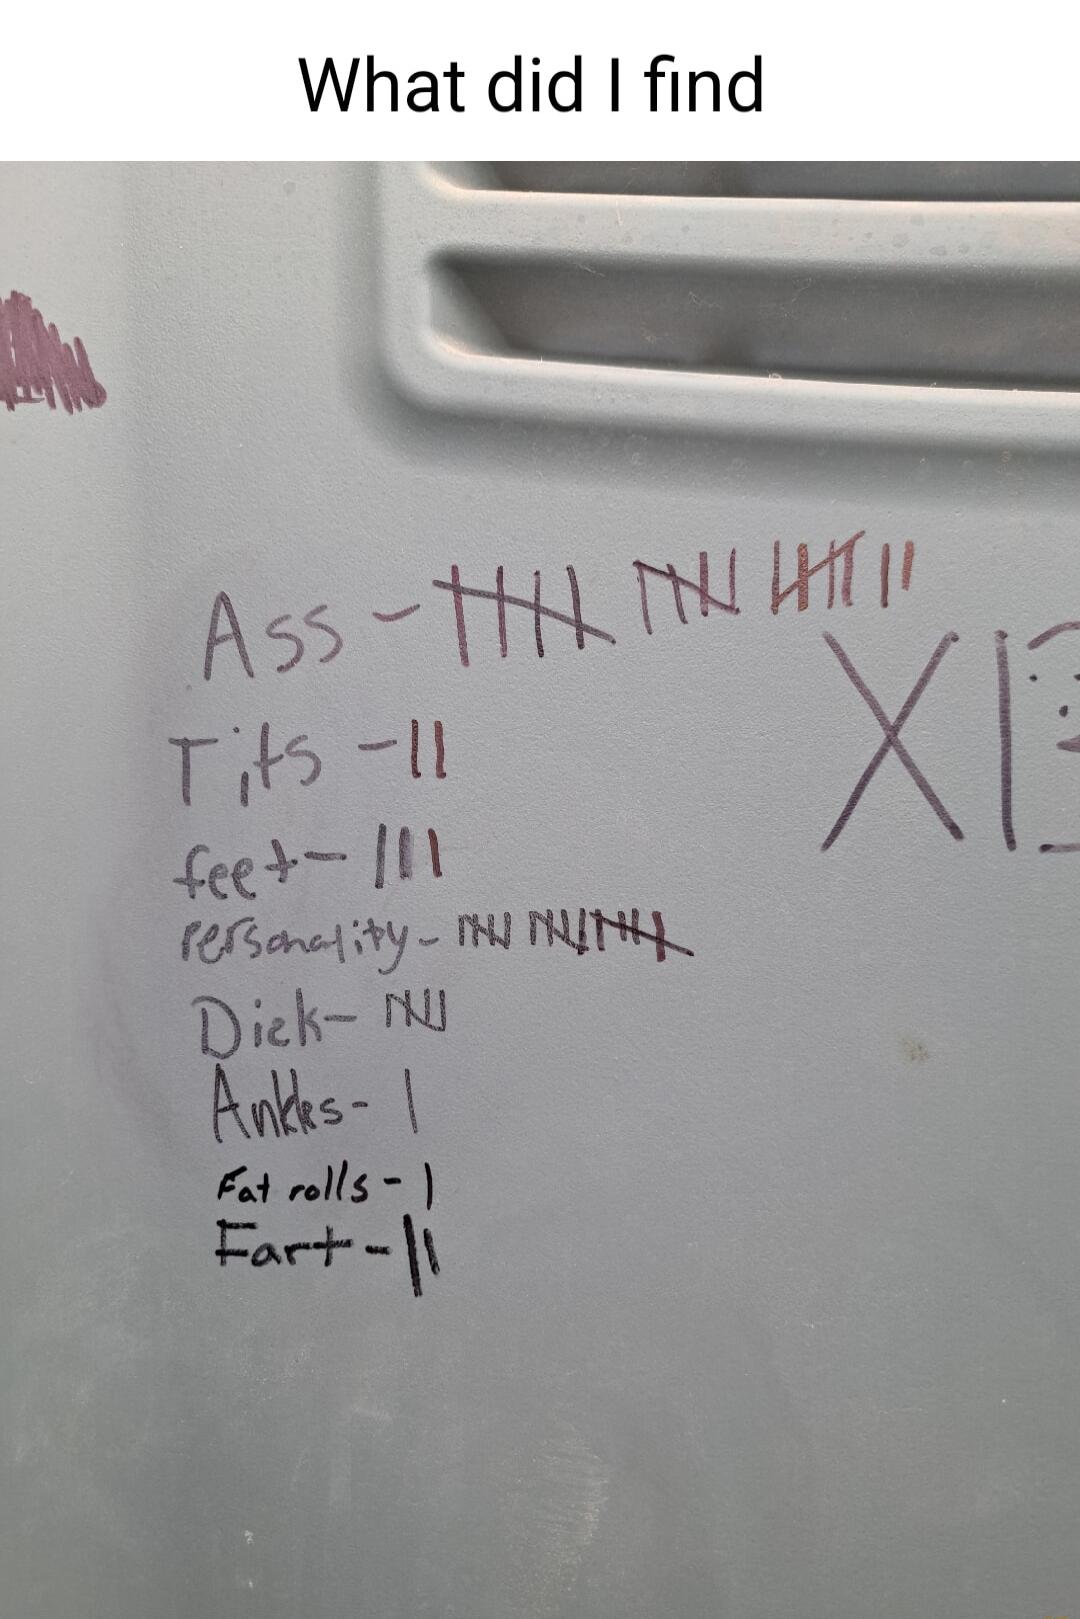 What did I find
Ass -
Tits -
feet -
Personality -
Dick -
Ankles -
Fat rolls -
Fart -